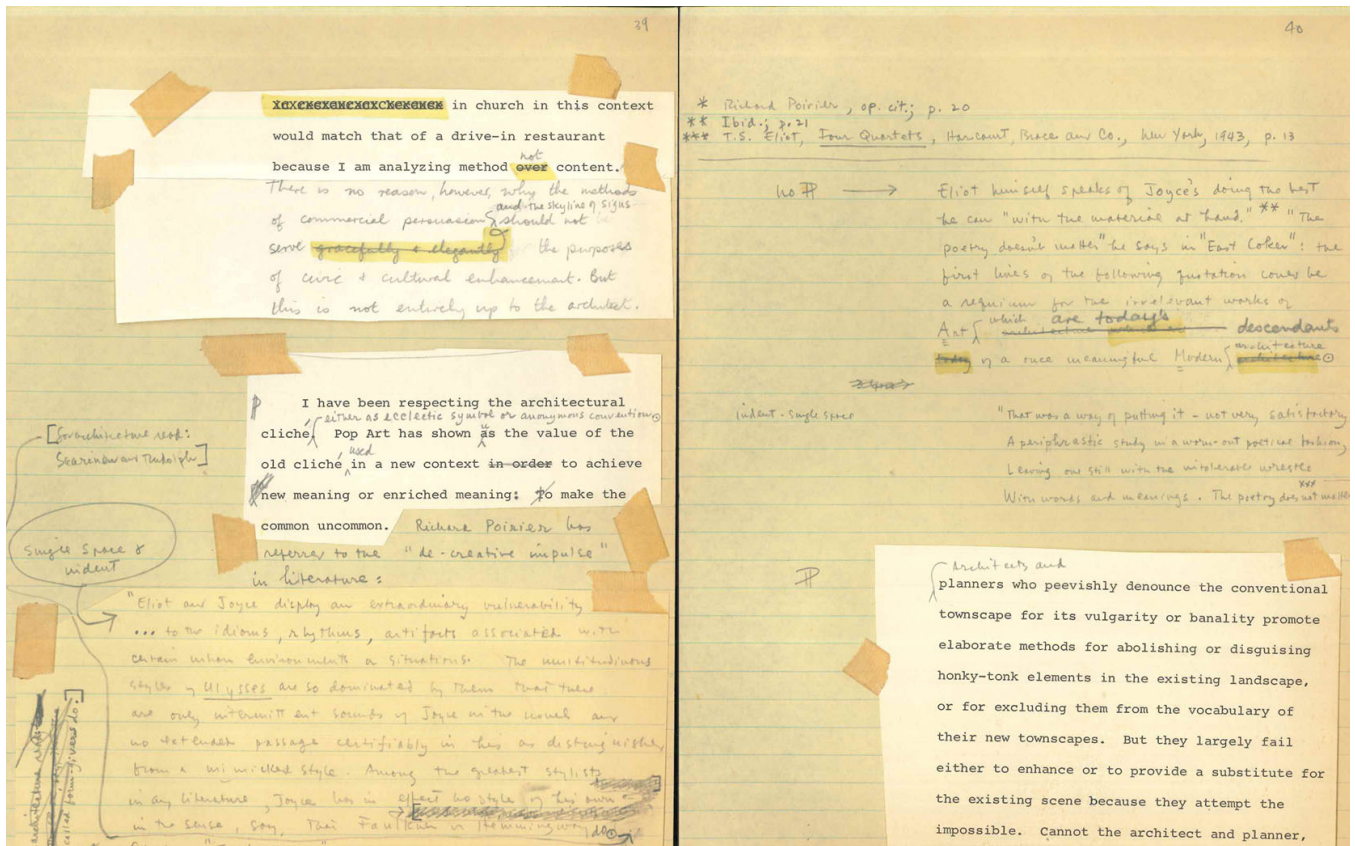 39
in church in this context
would match that of a drive-in restaurant
not
because I am analyzing method over content.
There is no reason, however, why the methods
and the skyline of signs
of commercial persuasion should not
serve gracefully & elegantly the purposes
of civic & cultural enhancement. But
this is not entirely up to the architect.
I have been respecting the architectural
either as eclectic symbol or anonymous convention
cliché. Pop Art has shown us the value of the
used
old cliché in a new context in order to achieve
new meaning or enriched meaning: To make the
common uncommon. Richard Poirier has
referred to the "de-creative impulse"
in literature:
[for architecture read:
Saarinen and Rudolph]
single space &
indent
"Eliot and Joyce display an extraordinary vulnerability
... to the idioms, rhythms, artifacts associated with
certain urban environments or situations. The multitudinous
styles of Ulysses are so dominated by them that there
are only intermittent sounds of Joyce in the novel and
no extended passage certifiably in his as distinguished
from a mimicked style. Among the greatest stylists
in any literature, Joyce has in effect no style of his own
in the sense, say, that Faulkner or Hemmingway do
architecture read
called form-givers do.]
40
* Richard Poirier, op. cit.; p. 20
** Ibid.; p. 21
*** T.S. Eliot, Four Quartets, Harcourt, Brace and Co., New York, 1943, p. 13
no ¶ → Eliot himself speaks of Joyce's doing the best
he can "with the material at hand." ** "The
poetry doesn't matter" he says in "East Coker": the
first lines of the following quotation could be
a requium for the irrelevant works of
which are today's
Art descendants
today of a once meaningful Modern architecture
architecture
indent - single space
"That was a way of putting it - not very satisfactory
A periphrastic study in a worn-out poetical fashion,
Leaving one still with the intolerable wrestle
With words and meanings. The poetry does not matter
***
¶
Architects and
planners who peevishly denounce the conventional
townscape for its vulgarity or banality promote
elaborate methods for abolishing or disguising
honky-tonk elements in the existing landscape,
or for excluding them from the vocabulary of
their new townscapes. But they largely fail
either to enhance or to provide a substitute for
the existing scene because they attempt the
impossible. Cannot the architect and planner,